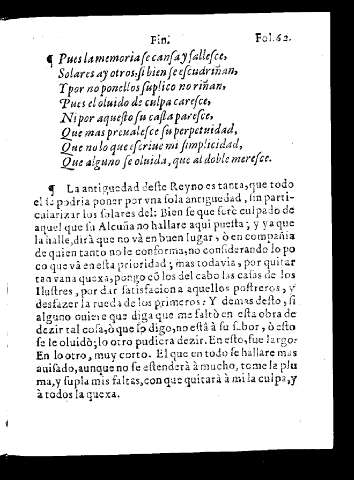 Fin. Fol. 62.
¶ Pues la memoria se cansa y fallesce,
Solares ay otros: si bien se escudriñan,
Y por no ponellos suplico no riñan,
Pues el oluido de culpa caresce,
Ni por aquesto su casta paresce,
Que mas preualesce su perpetuidad,
Que no lo que escriue mi simplicidad,
Que alguno se oluida, que al doble meresce.
¶ La antiguedad deste Reyno es tanta, que todo
el se podria poner por vna sola antiguedad, sin parti-
cularizar los solares del: Bien se que serè culpado de
aquel que su Alcuña no hallare aqui puesta; y ya que
la halle, dirà que no và en buen lugar, ò en compañia
de quien tanto no le conforma, no considerando lo po
co que và en esta prioridad; mas todavia, por quitar
tan vana quexa, pongo cõ los del cabo las casas de los
Ilustres, por dar satisfacion a aquellos postreros, y
desfazer la rueda de los primeros: Y demas desto, si
alguno oviere que diga que me faltò en esta obra de
dezir tal cosa, ò que lo digo, no està à su sabor, ò esto
se le oluidò; lo otro pudiera dezir. En esto, fue largo:
En lo otro, muy corto. El que en todo se hallare mas
auisado, aunque no se estenderà à mucho, tome la plu
ma, y supla mis faltas, con que quitarà à mi la culpa, y
à todos la quexa.